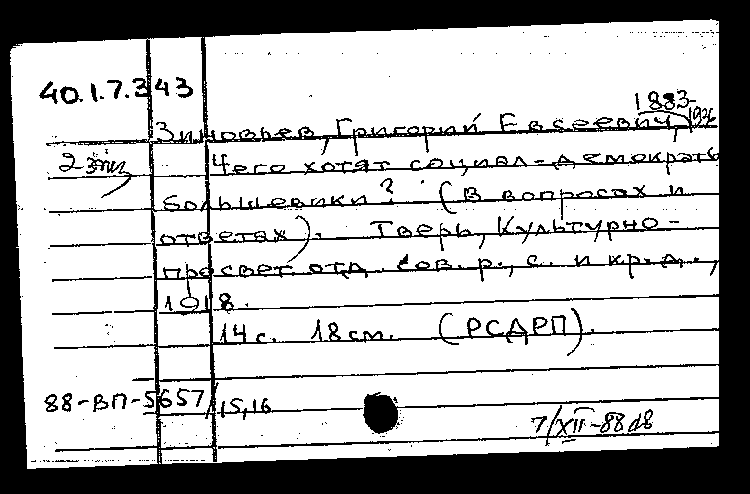 40.1.7.343
1883-1936
Зиновьев, Григорий Евсеевич,
2 экз Чего хотят социал-демократы
большевики? (В вопросах и
ответах). Тверь, Культурно-
просвет. отд. Сов. р., с. и кр. д.,
1918.
14 с. 18 см. (РСДРП).
88-ВП-5657/15,16
7/XII-88